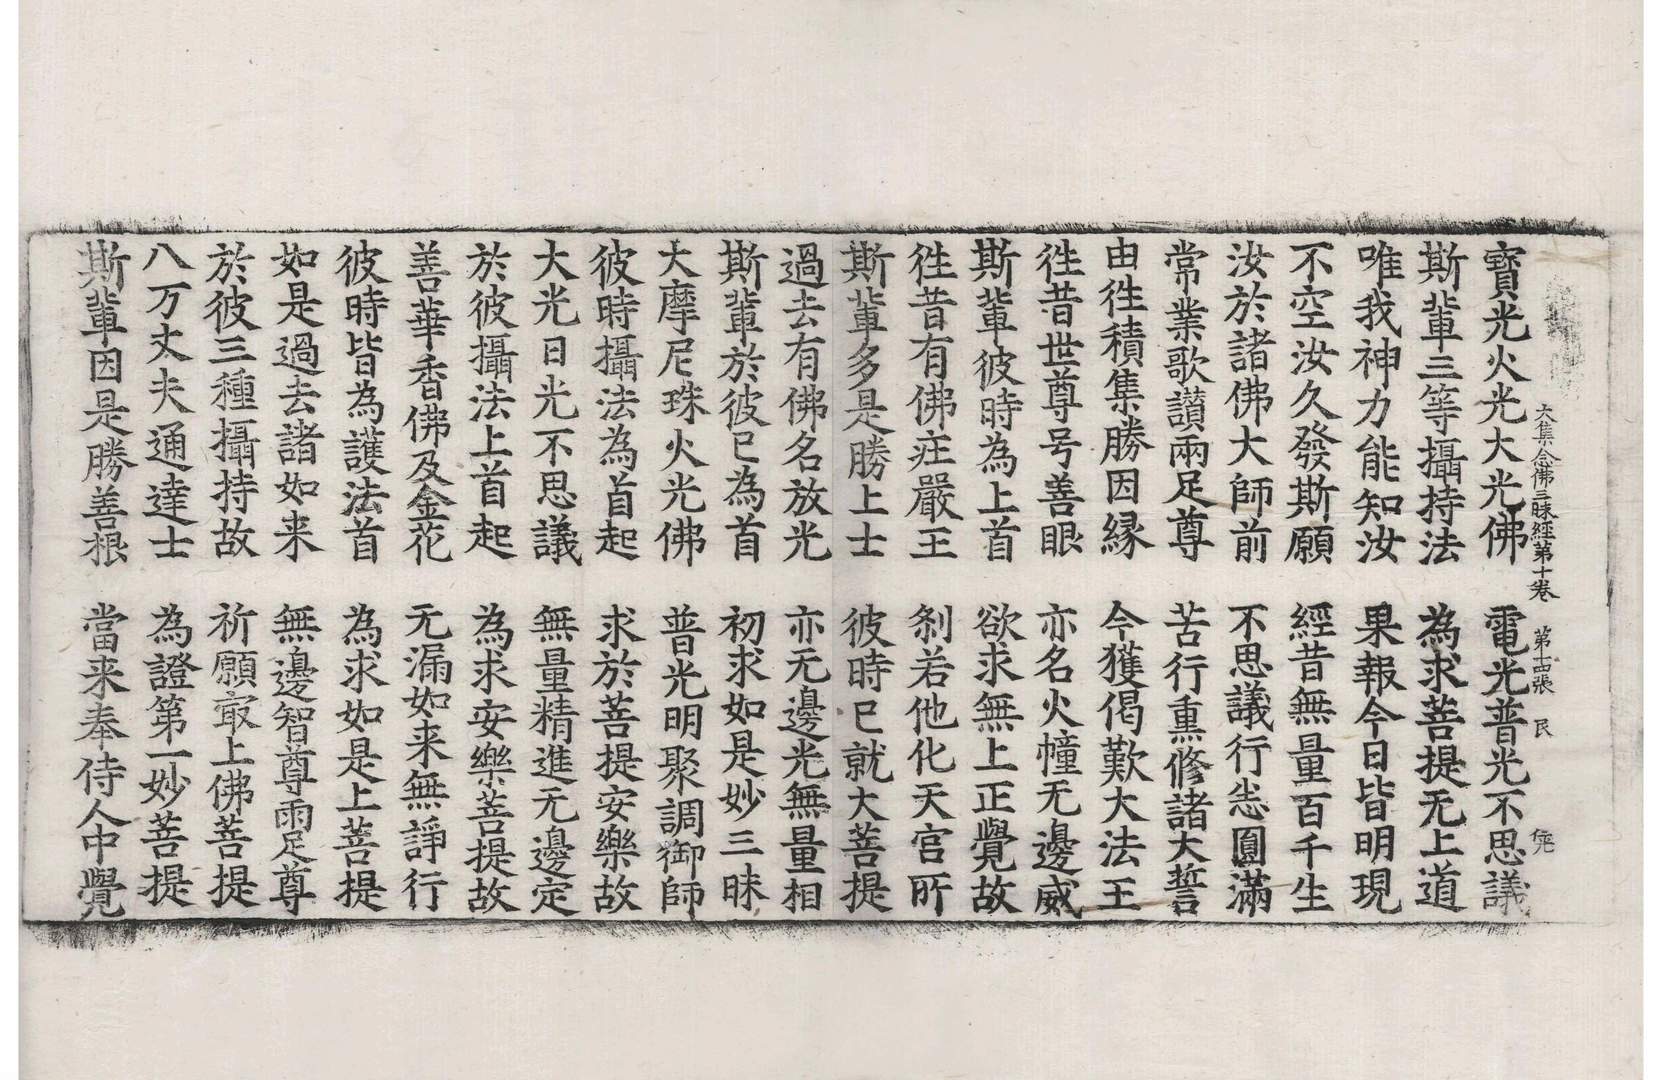 大集念佛三昧經第十卷　第十四張　民
寶光火光大光佛　電光普光不思議
斯輩三等攝持法　為求菩提无上道
唯我神力能知汝　果報今日皆明現
不空汝久發斯願　經昔無量百千生
汝於諸佛大師前　不思議行悉圓滿
常業歌讃兩足尊　苦行熏修諸大誓
由往積集勝因縁　今獲偈歎大法王
往昔世尊号善眼　亦名火幢无邊威
斯輩彼時為上首　欲求無上正覺故
往昔有佛莊嚴王　刹若他化天宫所
斯輩多是勝上士　彼時已就大菩提
過去有佛名放光　亦无邊光無量相
斯輩於彼已為首　初求如是妙三昧
大摩尼珠火光佛　普光明聚調御師
彼時攝法為首起　求於菩提安樂故
大光日光不思議　無量精進无邊定
於彼攝法上首起　為求安樂菩提故
善華香佛及金花　无漏如来無諍行
彼時皆為護法首　為求如是上菩提
如是過去諸如来　無邊智尊兩足尊
於彼三種攝持故　祈願㝡上佛菩提
八万丈夫通達士　為證第一妙菩提
斯輩因是勝善根　當来奉侍人中覺